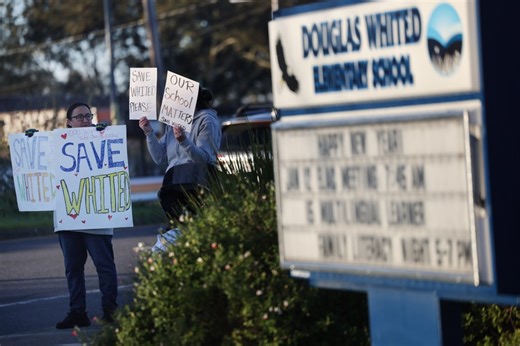 SAVE
WHITED
SAVE
WHITED
SAVE
WHITED
PLEASE
OUR
School
MATTERS
DOUGLAS WHITED
ELEMENTARY SCHOOL
HAPPY NEW YEAR!
MEETING 7:45 AM
16 MULTILINGUAL LEARNER
FAMILY LITERACY NIGHT 5-7 PM